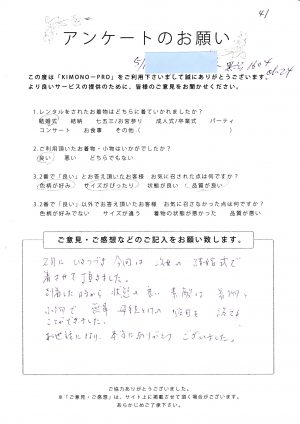 41
アンケートのお願い
5/1
1604
06-24
この度は「KIMONO－PRO」をご利用下さいまして誠にありがとうございます。
より良いサービスの提供のために、皆様のご意見をお聞かせください。
1.レンタルをされたお着物はどちらに着ていかれましたか？
結婚式 結納 七五三/お宮参り 成人式/卒業式 パーティ
コンサート お食事 その他（ ）
2.ご利用頂いたお着物・小物はいかがでしたか？
良い 悪い どちらでもない
3.2番で「良い」とお答え頂いたお客様 お気に召された点は何ですか？
色柄が好み サイズがぴったり 状態が良い 品質が良い
3.2番で「良い」以外でお答え頂いたお客様 お気に召さなかった点は何ですか？
色柄が好みでない サイズが違う 着物の状態が悪かった 品質が悪い
ご意見・ご感想などのご記入をお願い致します。
2月にひきつづき 今回は 次女の 結婚式で
着させて頂きました。
到着した時から 状態の良い 素敵な 着物、
小物で 無事 母親としての 役目を
ことができました。
お世話になり、本当にありがとうございました。
ご協力ありがとうございました。
※「ご意見・ご感想」は、サイト上に掲載させて頂く場合がございます。
あらかじめご了承下さい。